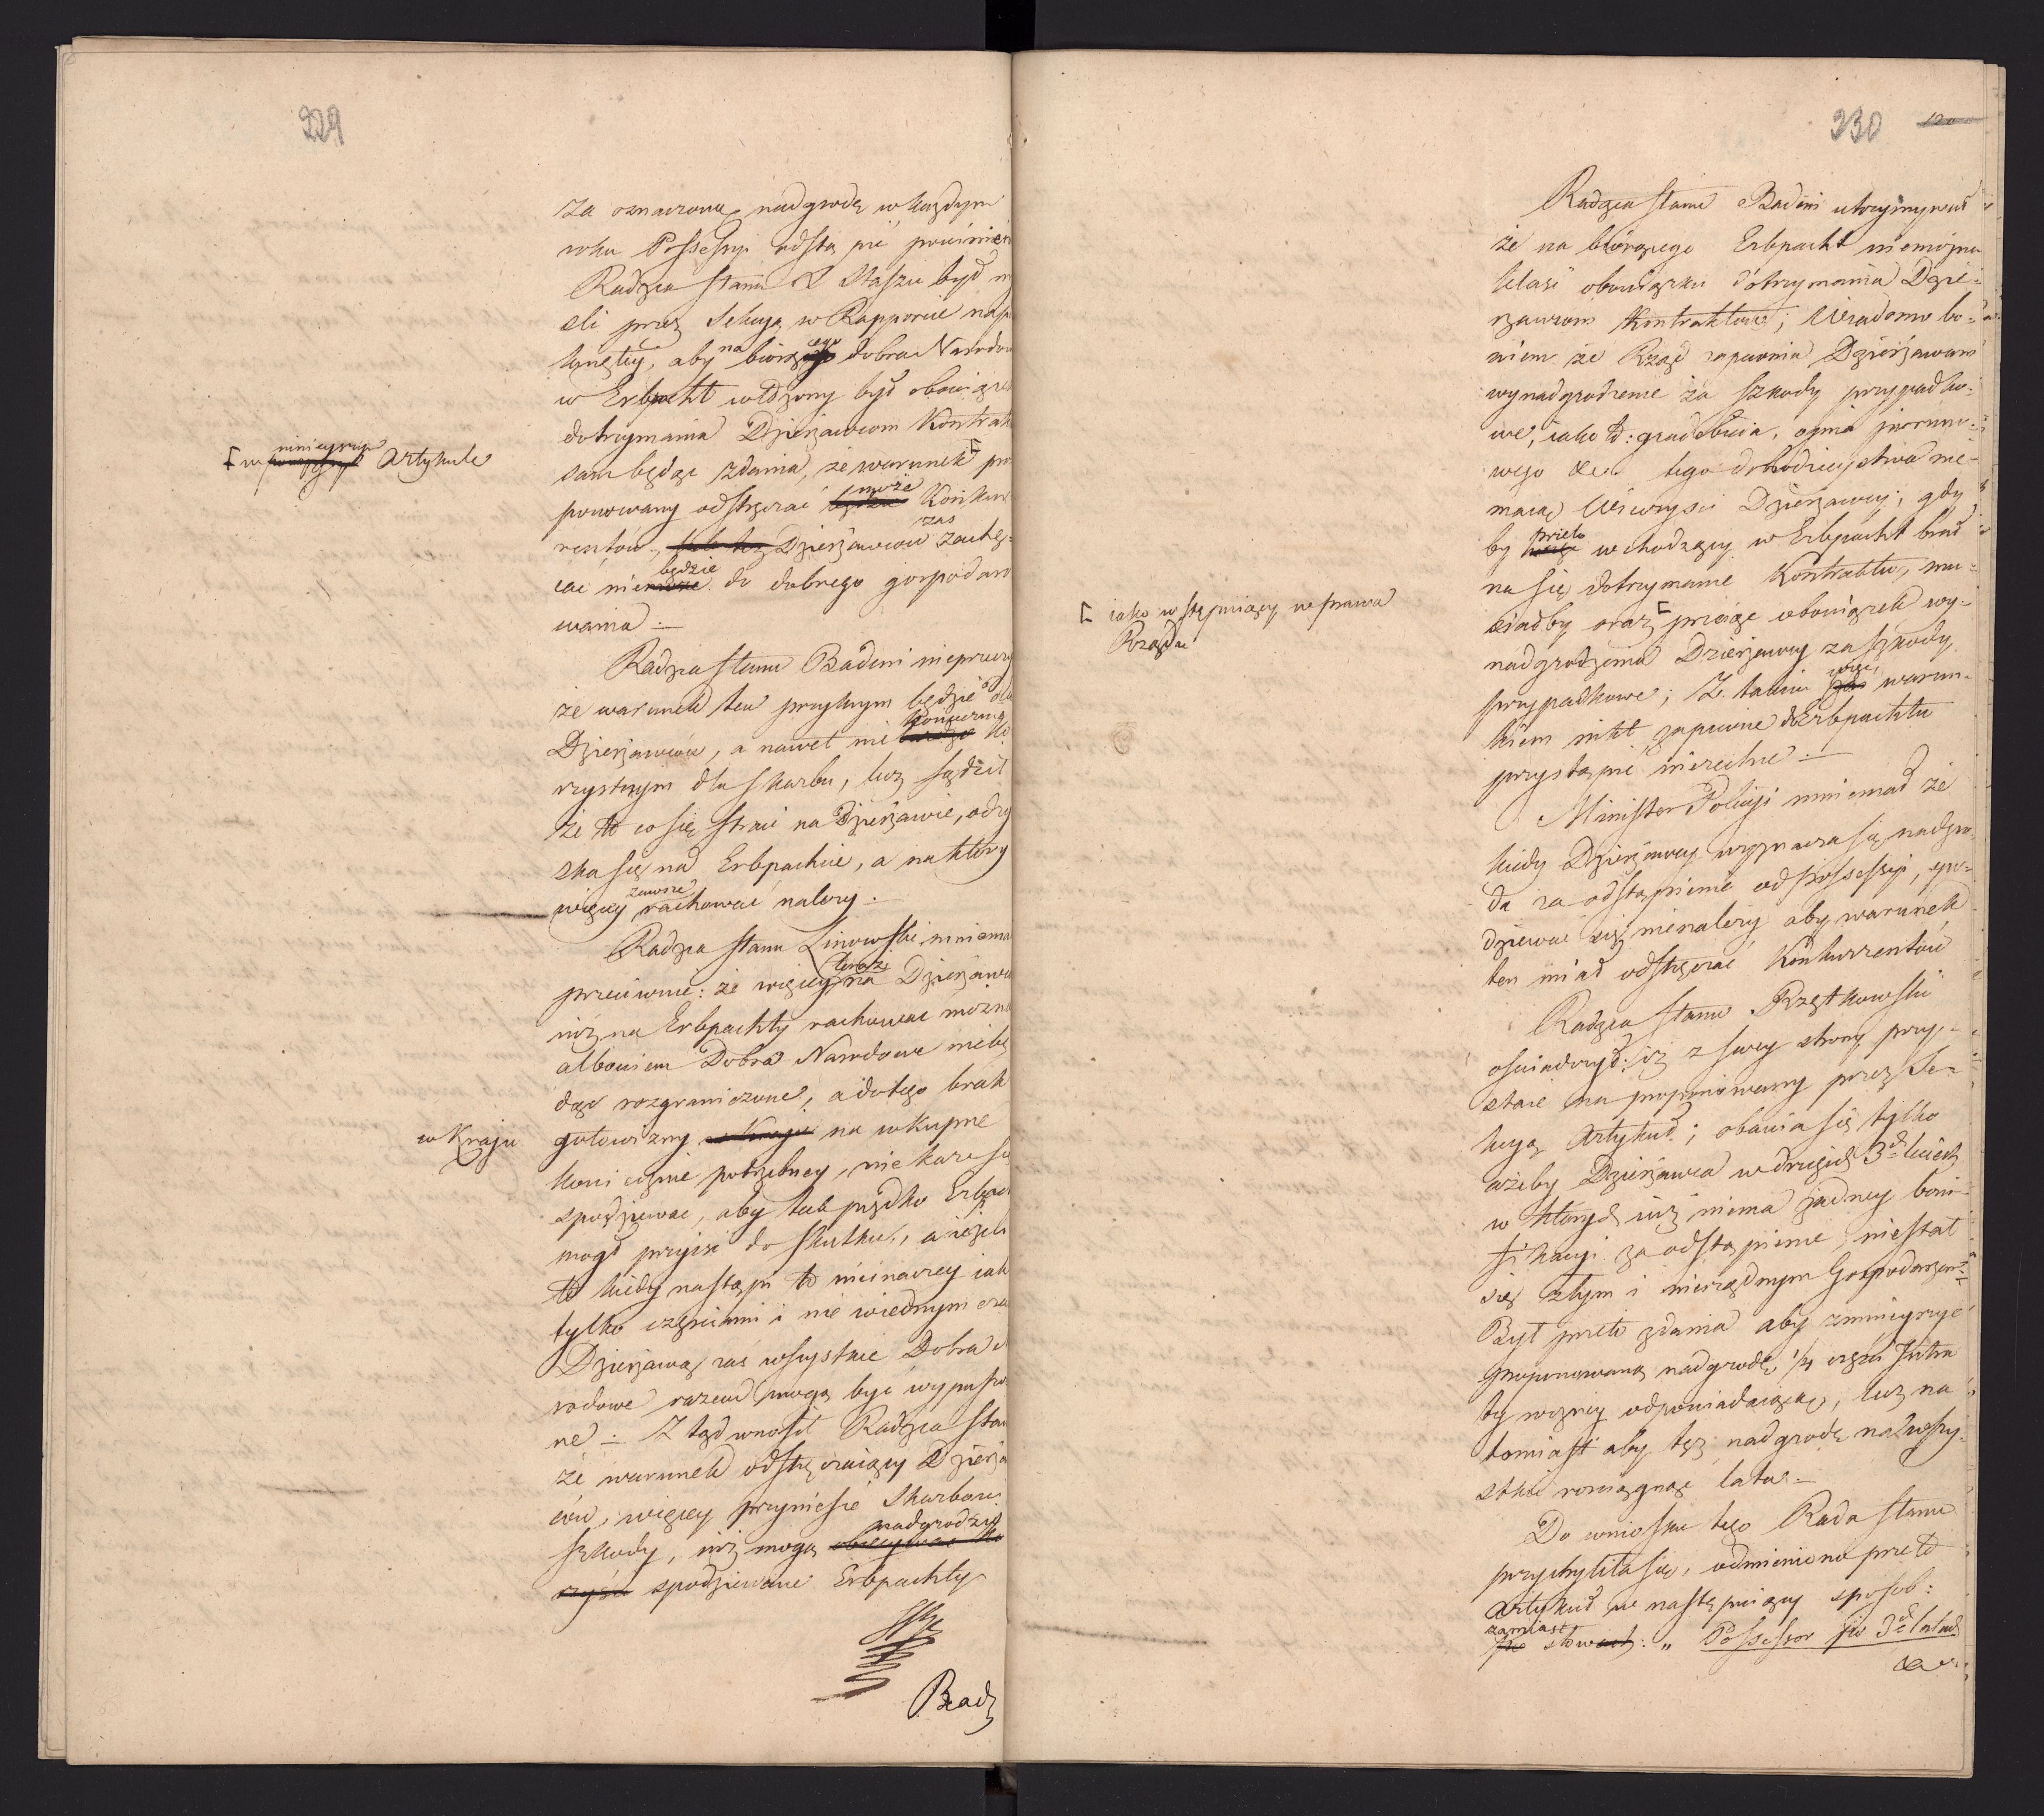 229
za oznaczoną nadgrodę w każdym
roku Possessyi odstąpić powinien
Radzca Stanu X Staszic był my
śli przez Sekcyą w Rapporcie nap
kniętey, aby na biorącego dobra Narodow
w Erbpacht włożony był obowiązek
dotrzymania Dzierżawcom Kontrakt
[ w ninieyszym Artykule
sam będąc zdania, że warunek [ pro
ponowany odstręczać może Konkur
rentów, Dzierżawców zas zachę-
cać nie będzie do dobrego gospodaro
wania.
Radzca Stanu Badeni nieprzeczy
że warunek ten przykrym będzie dla
Dzierżawców, a nawet nie ko
rzystnym dla skarbu, lecz sądził
że to co się straci na Dzierżawie, odzy
ska się na Erbpachcie, a na który
więcey zawsze rachować należy.
Radzca Stanu Linowski mniema
przeciwnie: że więcey teraz na Dzierżawę
niż na Erbpachty rachować można
albowiem Dobra Narodowe niebę
dąc rozgraniczone, a do tego brak
w Kraju
gotowizny w Kraju na wkupne
koniecznie potrzebney, nie każe się
spodziewać, aby tak prędko Erbpac
mogł przyiść do skutku, a ieżeli
to kiedy nastąpi to nieinaczey iak
tylko częściami i nie wiednym cza
Dzierżawą zaś wszystkie Dobra N
rodowe razem mogą być wypuszcz
ne. Ztąd wnosił Radzca Stanu
że warunek odstręczaiący Dzierża
ców, więcey przyniesie Skarbowi
szkody, niż mogą nadgrodzić
spodziewane Erbpachty
Radz
230
120
Radzca Stanu Badeni utrzymywał
że na biorącego Erbpacht niemożna
kłaść obowiązku dotrzymania Dzier-
żawcom Kontraktów; Wiadomo bo-
wiem że Rząd zapewnia Dzierżawcom
wynadgrodzenie za szkody przypadko-
we, iako to: gradobicia, ognia pioruno-
wego &c. tego dobrodzieystwa nie
maią Wieczyści Dzierżawcy, gdy
by przeto wchodzący w Erbpacht brał
na się dotrzymanie Kontraktu, mu-
siałby oraz [ przyiąć obowiązek wy-
[ iako wstępuiący w prawa
Rządu
nadgrodzenia Dzierżawcy za szkody
przypadkowe; Z takim więc warun-
kiem nikt zapewne do Erbpachtu
przystąpić niezechce.
Minister Policyi mniemał że
kiedy Dzierżawcy wyznacza się nadgro-
da za odstąpienie od possessyi, spo-
dziewać się nienależy aby warunek
ten miał odstręczać Konkurrentów
Radzca Stanu Rzętkowski
oświadczył: iż z swey strony przy-
staie na proponowany przez Se-
kcyą Artykuł; obawia się tylko
ażeby Dzierżawca w drugich 3ch leciech
w których iuż niema żadney boni-
fikacyi za odstąpienie, niestał
się złym i nierządnym Gospodarzem.
Był przeto zdania aby zmnieyszyć
proponowaną nadgrodę, 1/4 części Intra
ty roczney odpowiadaiącą, lecz na
tomiast aby tęż nadgrodę na wszy-
stkie rozciągnąć lata.
Do wniosku tego Rada Stanu
przychyliła się, odmieniono przeto
Artykuł w następuiący sposob:
zamiast słow: „ Possessor po 3ch latach
&c.